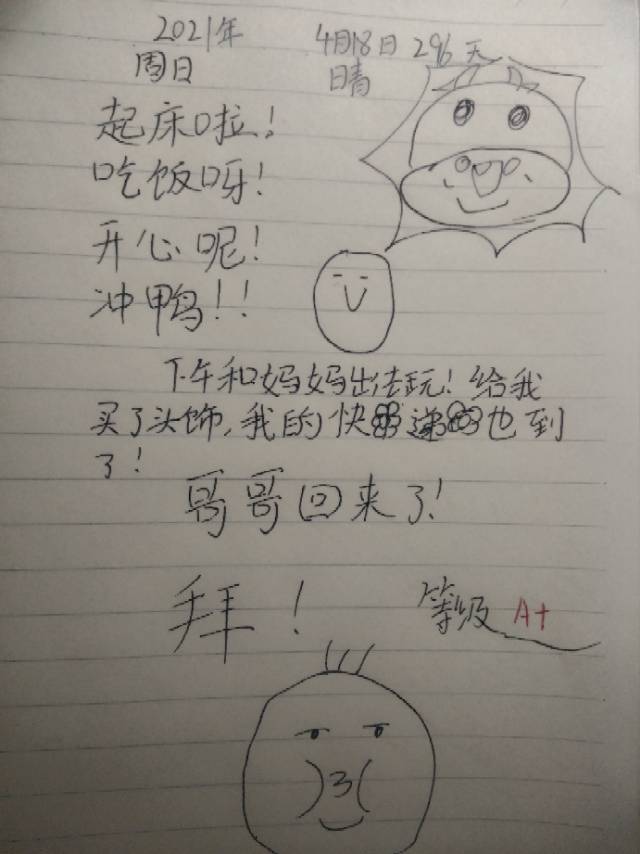 2021年 4月18日 296天
周日 晴
起床啦!
吃饭呀!
开心呢!
冲鸭!!
下午和妈妈出去玩!给我
买了头饰,我的快递也到
了!
哥哥回来了!
拜!
等级 A+